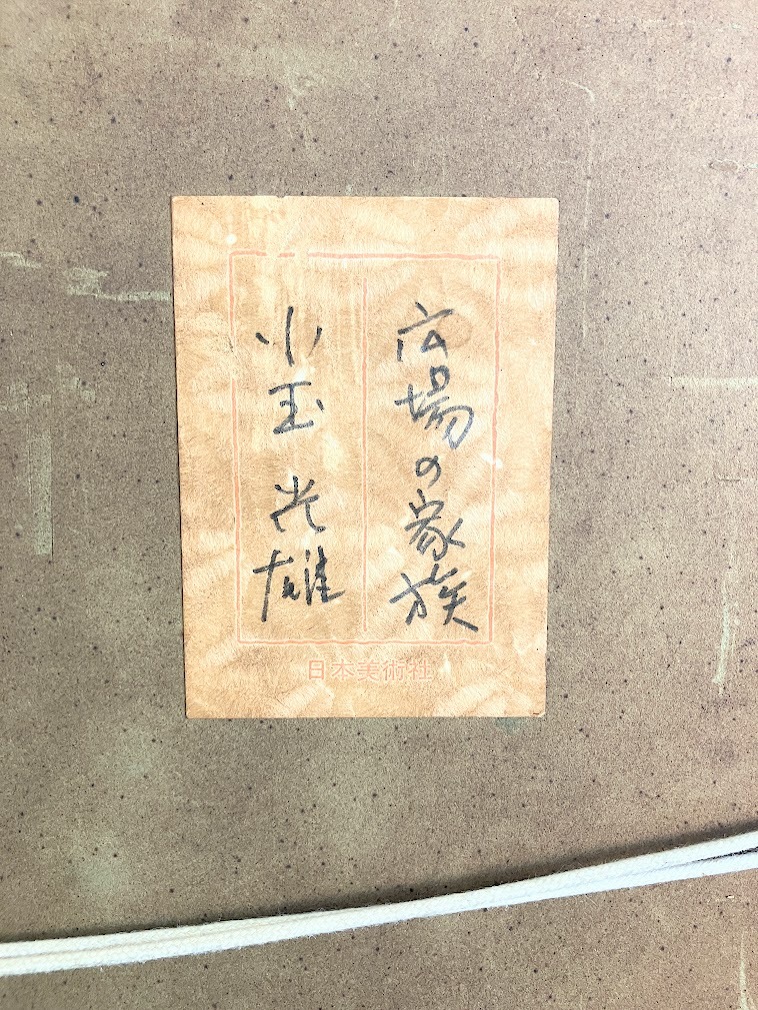 広場の家族
小玉光雄
日本美術社